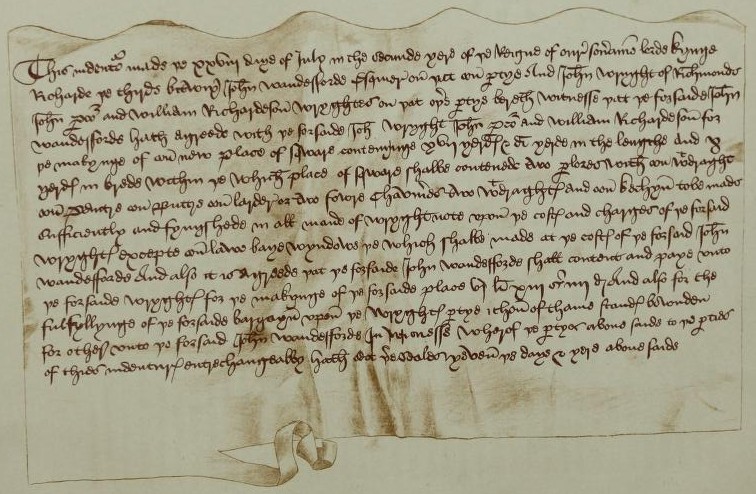 This indentr̃ made ye xxviii daye of July in the secunde yere of ye Reigne of our̃ soũaine lorde kynge
Richarde ye thirde bitwix John Wandesforde Esquier on yt on ptye And John Wryght of Richmonde
John and William Richardeson Wryghtes on yat oyr ptye bereth witnesse yt ye forsaide John
Wandesforde hath agreede with ye forsaide Joh̃ Wryght John and William Richardeson for
ye makynge of on new place of sware contenynge xvii yerdes & di yerde in the lengthe and x
yerdes in brede within ye which place of sware shalbe contenede two plores with on
on Pentre on on larder or two foure Chaumbres two and on kechyn to be made
sufficiently and fynyshede in all maner of wryght uppon ye costes and charges of ye forsaid
wryghtes excepte on baye wyndowe ye which shalbe made at ye costes of ye forsaid John
Wandesforde And also it is agreede yat ye forsaide John Wandesforde shall content and paye unto
ye forsaide wryghtes for ye makynge of ye forsaide place vi li xiii s iiii d And also for the
fulfyllynge of ye forsaide bargayn uppon ye wryghtes ptye ichon of thame standes bounden
for other unto ye forsaid John Wandesforde In Witnesse wherof ye ptyes above saide to ye pties
of thies indenturs entrechangeably hath set yr Seales yeven ye daye & yere above saide